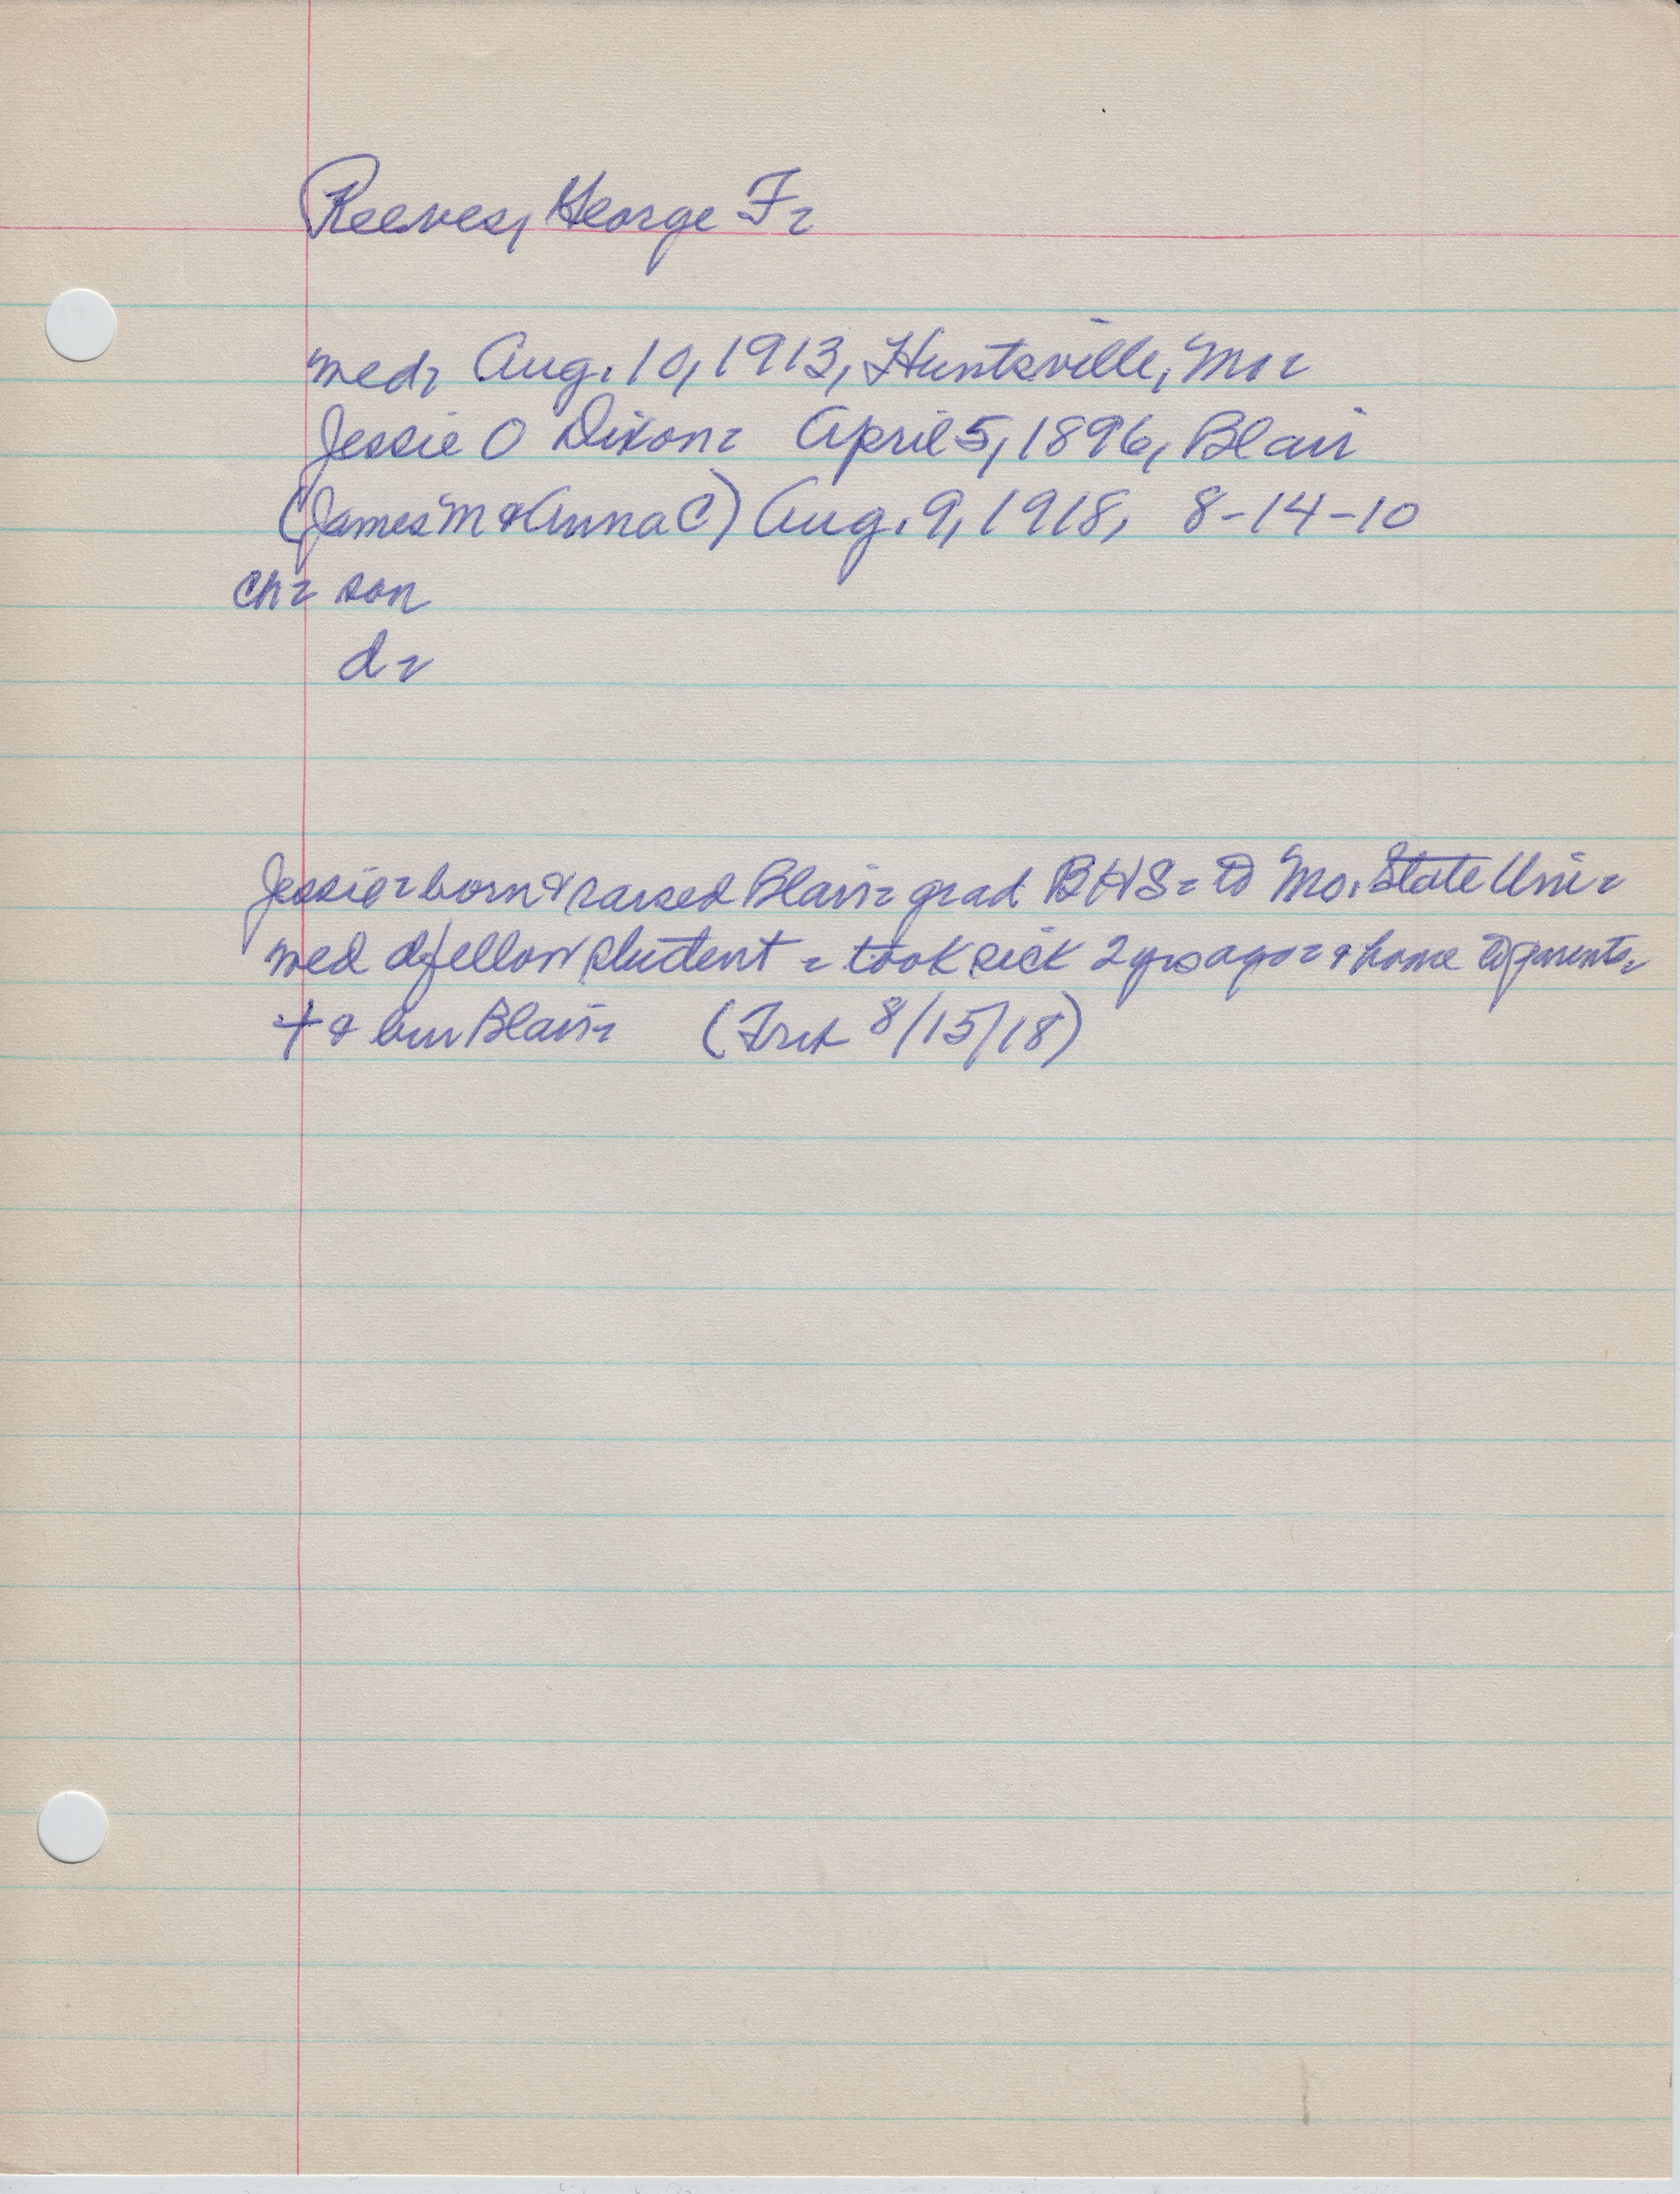 Reeves, George F-
med, Aug. 10, 1913, Huntsville, Mo-
Jessie O Dixon- April 5, 1896, Blair
(James M & Anna C) Aug. 9, 1918, 8-14-10
ch- son
d-
Jessie-born & raised Blair- grad BHS- to Mo. State Uni-
med fellow student - took sick 2 yrs ago- & home to parents-
+ & bur Blair- (Trib 8/15/18)